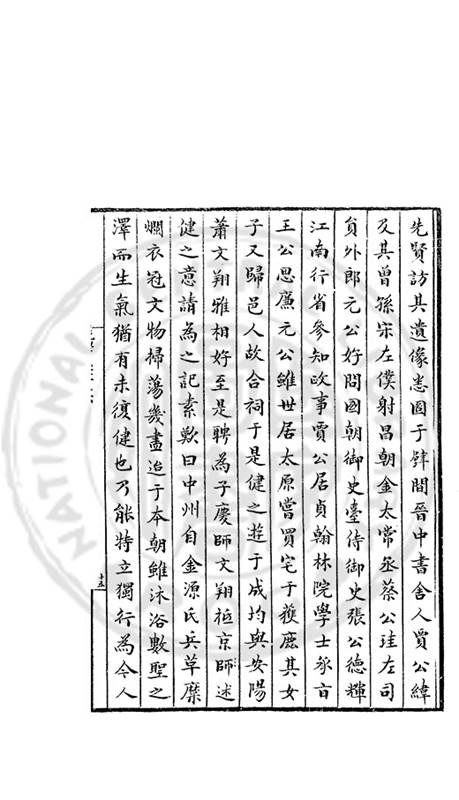 先賢訪其遺像悉圖于壁間晉中書舍人賈公緯
及其曾孫宋左僕射昌朝金太常丞蔡公珪左司
貟外郎元公好問國朝御史臺侍御史張公德輝
江南行省參知政事賈公居貞翰林院學士承㫖
王公思廉元公雖世居太原嘗買宅于獲鹿其女
子又歸邑人故合祠于是健之遊于成均與安陽
蕭文翔雅相好至是聘為子慶師文翔抵京師述
健之意請為之記素歎曰中州自金源氏兵草糜
爛衣冠文物掃蕩幾盡迨于本朝雖沐浴數聖之
澤而生氣猶有未復健也乃能特立獨行為今人
十三
NATIONAL